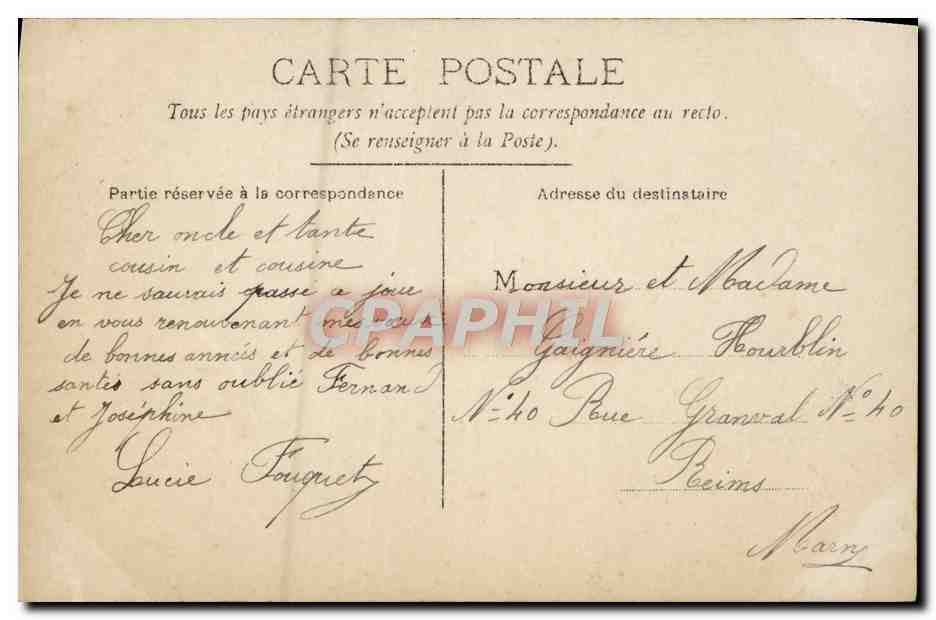 CARTE POSTALE
Tous les pays étrangers n'acceptent pas la correspondance au recto.
(Se renseigner à la Poste).
Partie réservée à la correspondance
Cher oncle et tante
cousin et cousine
Je ne saurais passe a jour
en vous renouvenant mes vœux
de bonnes anneés et de bonnes
santés sans oublié Fernand
et Joséphine
Lucie Fouquet
Adresse du destinataire
Monsieur et Madame
Gaignière Hourblin
N° 40 Rue Granval N° 40
Reims
Marne
CPAPHIL